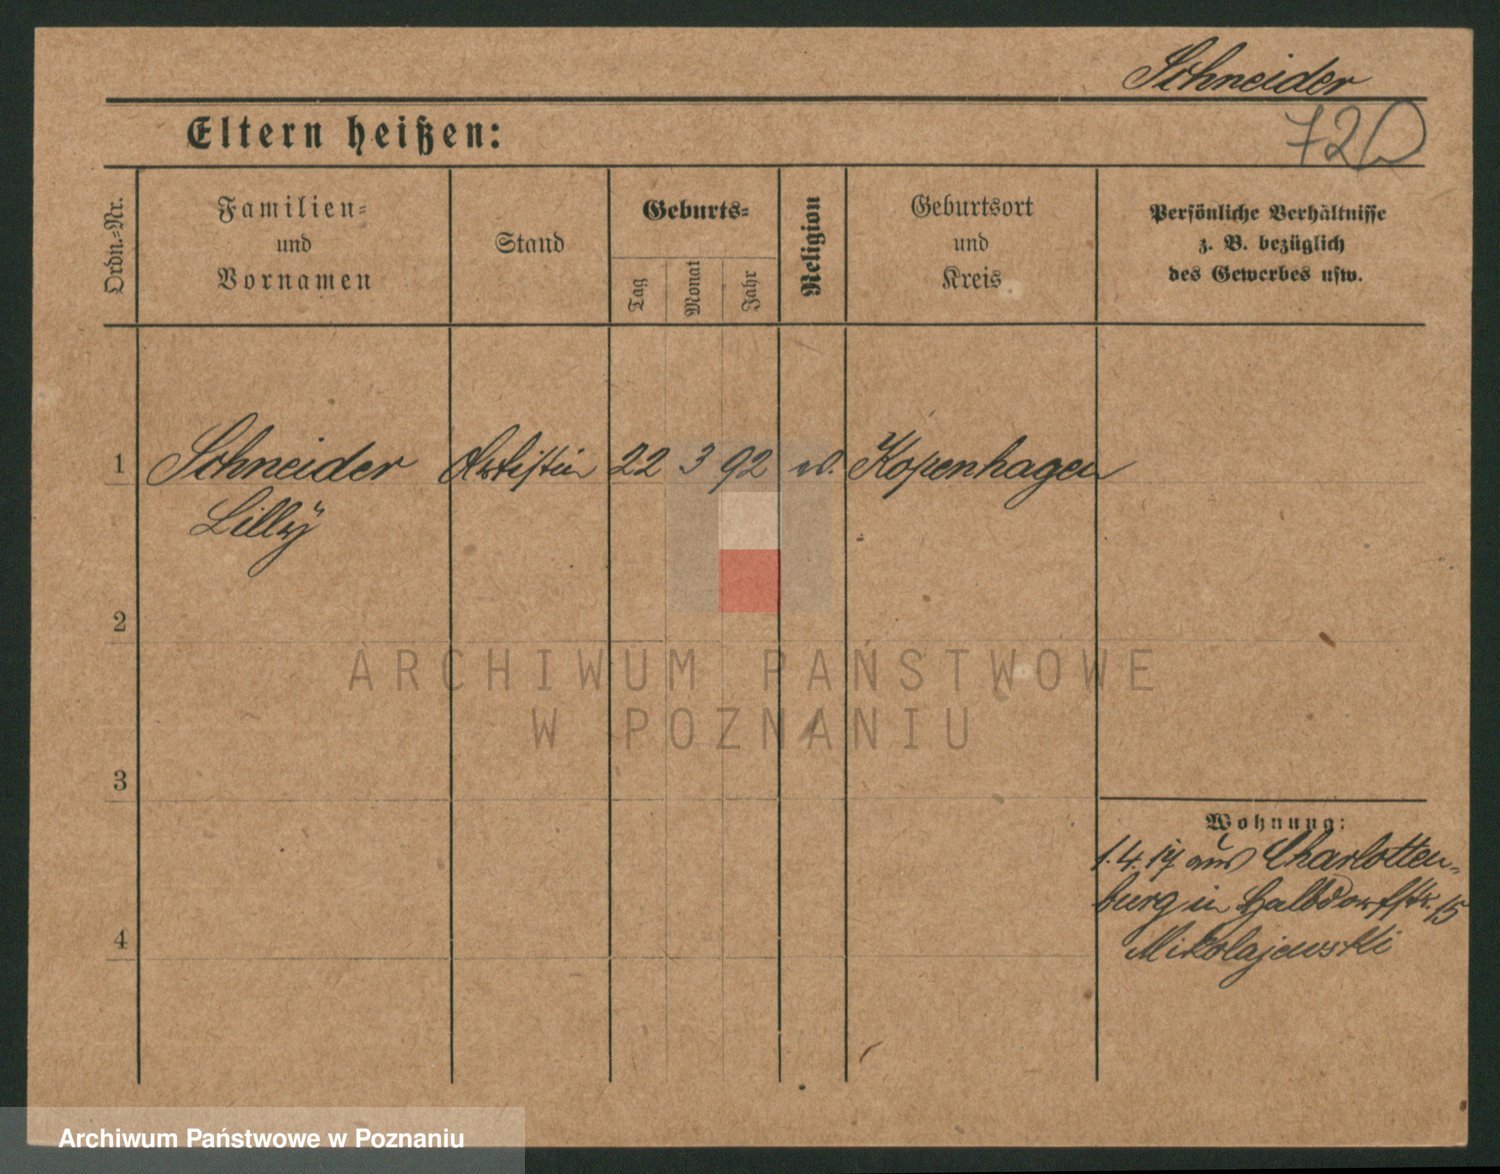 Schneider
Eltern heißen:
72
Ordn.-Nr.
Familien-
und
Vornamen
Stand
Geburts-
Tag
Monat
Jahr
Religion
Geburtsort
und
Kreis
Persönliche Verhältnisse
z. B. bezüglich
des Gewerbes usw.
1 Schneider Artistin 22 3 92 Kopenhagen
Lilly
2
ARCHIWUM PAŃSTWOWE
W POZNANIU
3
Wohnung:
1.4.17 aus Charlotten-
burg in Halbdorfstr. 15
4
Mikolajewski
Archiwum Państwowe w Poznaniu